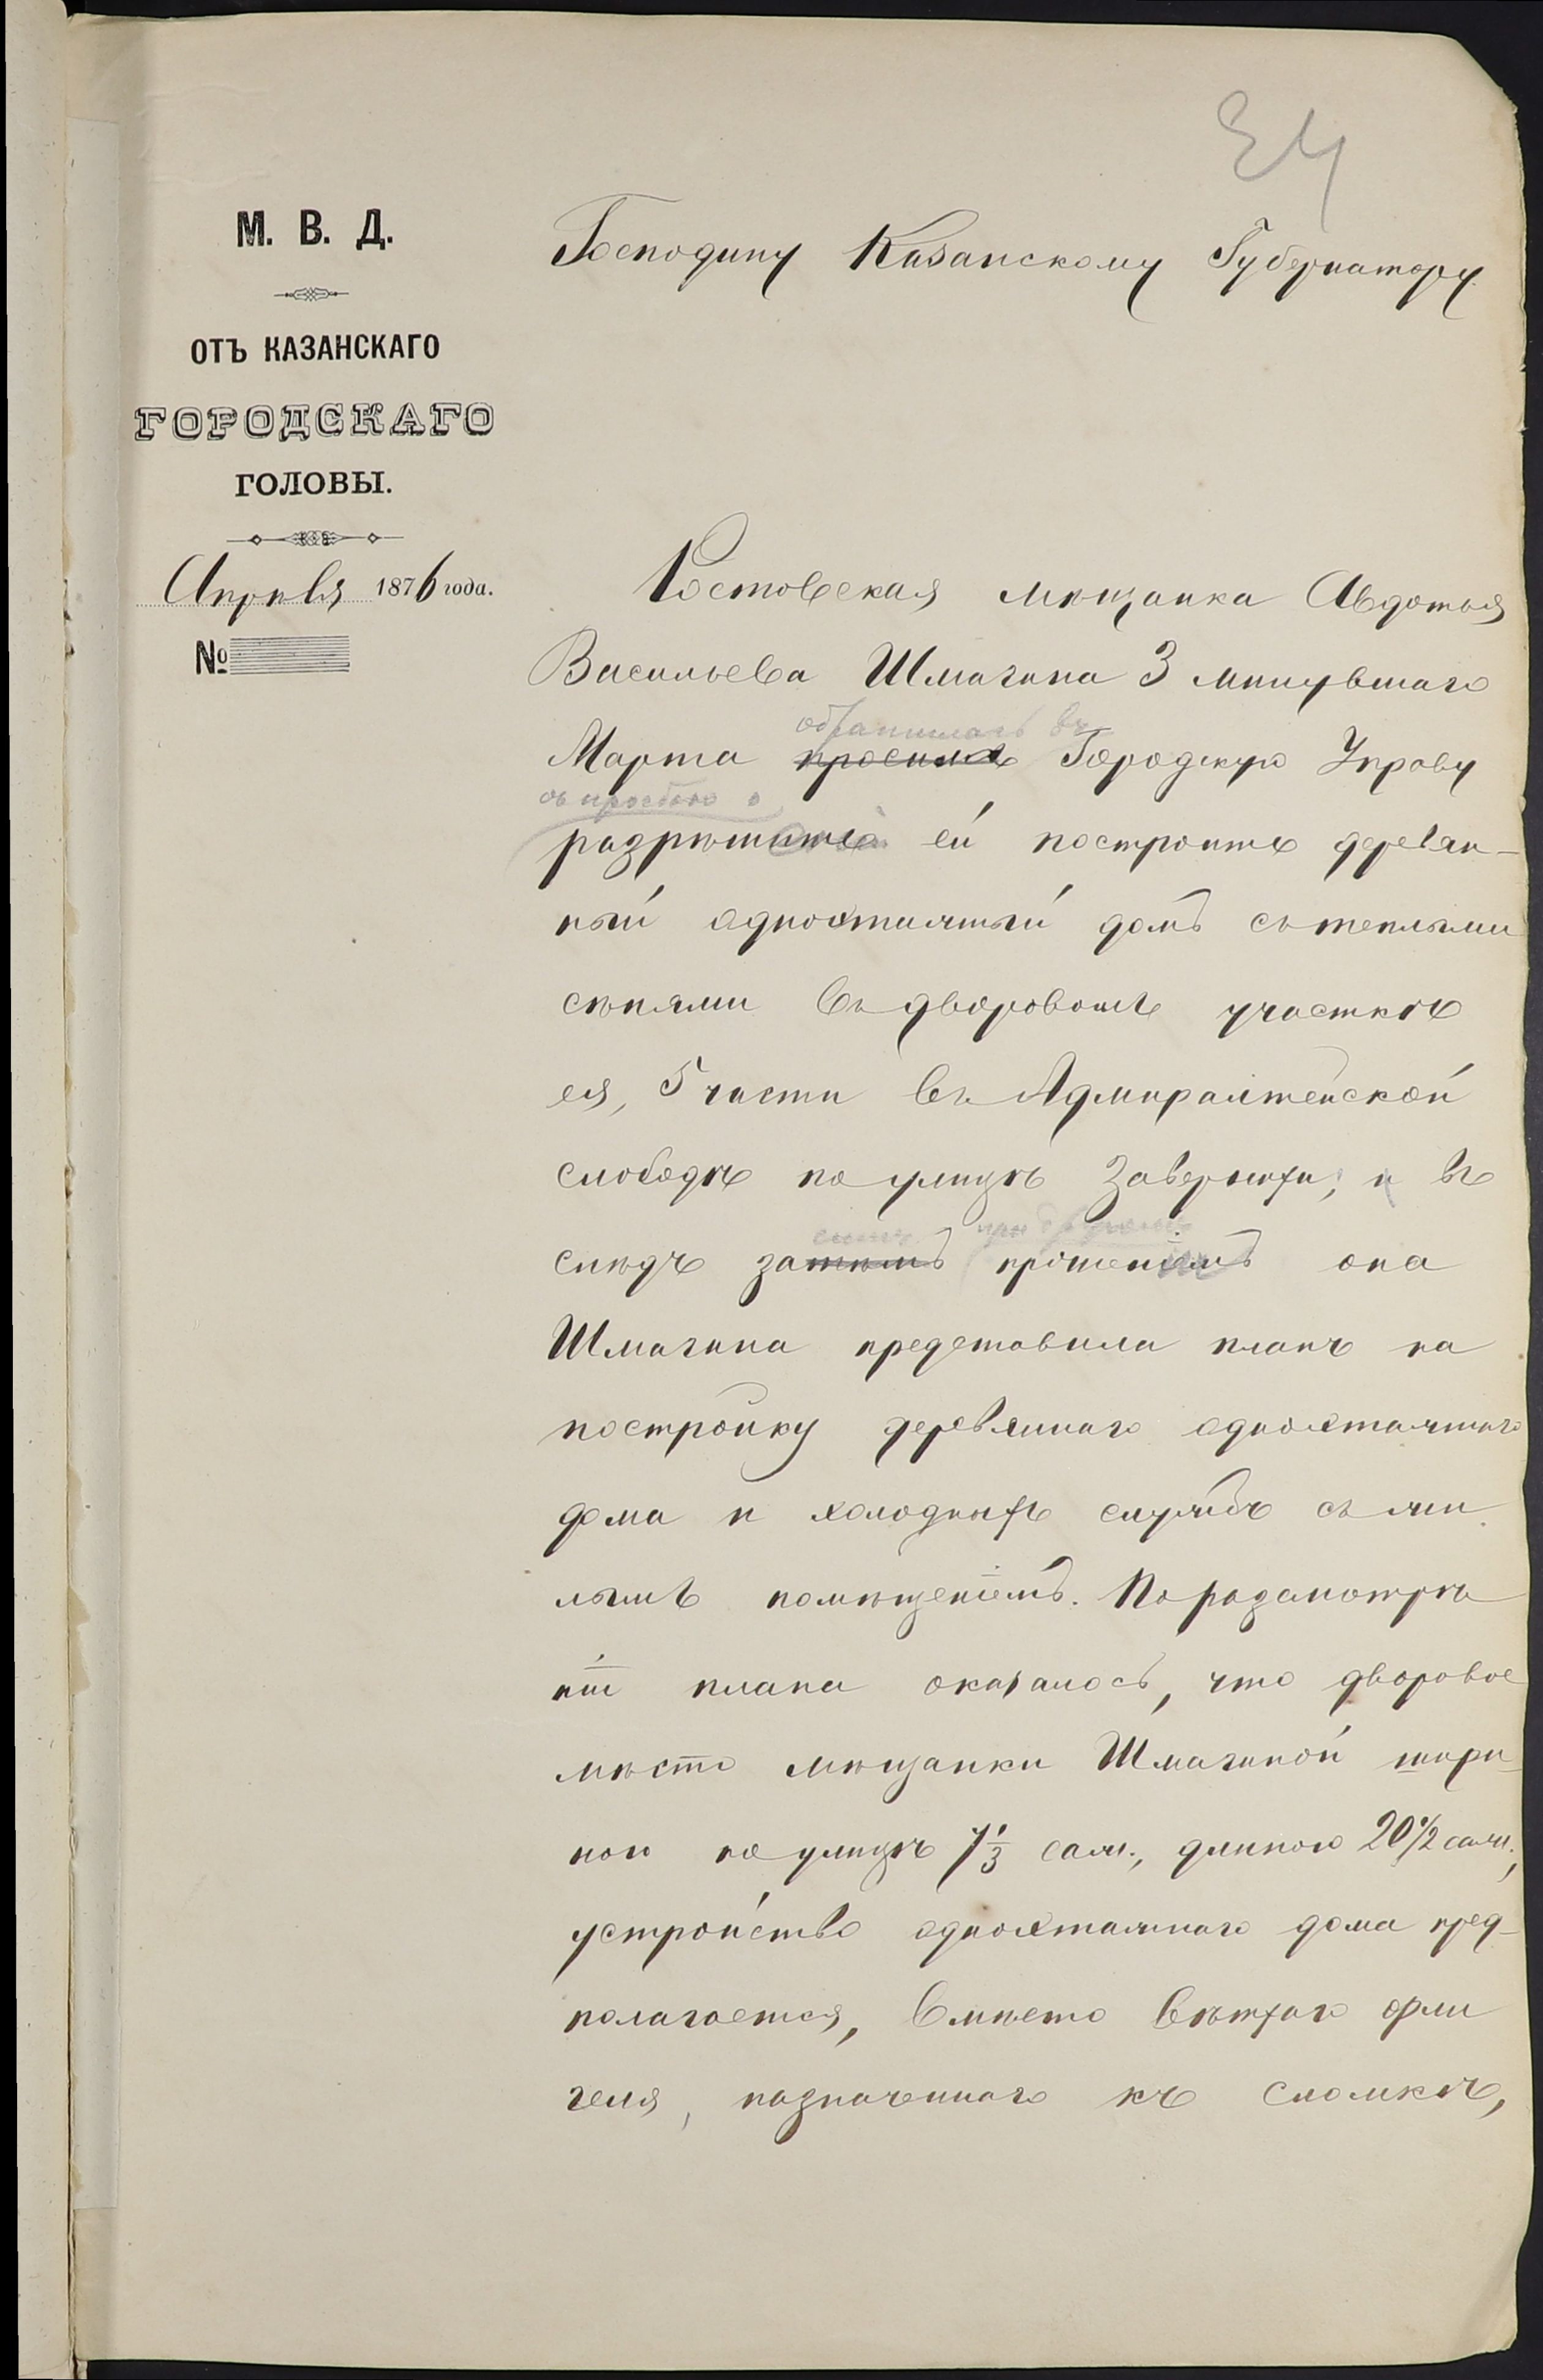 М. В. Д.
ОТЪ КАЗАНСКАГО
ГОРОДСКАГО
ГОЛОВЫ.
Апрѣля 1876 года.
№
Господину Казанскому Губернатору.
Ростовская мѣщанка Авдотья
Васильева Шмагина 3 минувшаго
обратилась въ
Марта просила Городскую Управу
съ просьбою о
разрѣшить ей построить деревян-
ный одноэтажный домъ съ теплыми
сѣнями въ дворовомъ участкѣ
ея, 5 части въ Адмиралтейской
слободѣ по улицѣ Заверняхи; и въ
симъ при другомъ
слѣдъ затѣмъ прошеніемъ она
Шмагина представила планъ на
постройку деревяннаго одноэтажнаго
дома и холодныхъ службъ съ жи
лымъ помѣщеніемъ. По разсмотрѣ
ніи плана оказалось, что дворовое
мѣсто мѣщанки Шмагиной шири-
ною по улицѣ 7 1/3 саж., длиною 20 1/2 саж.,
устройство одноэтажнаго дома пред-
полагается, вмѣсто ветхаго фли
геля, назначеннаго къ сломкѣ,